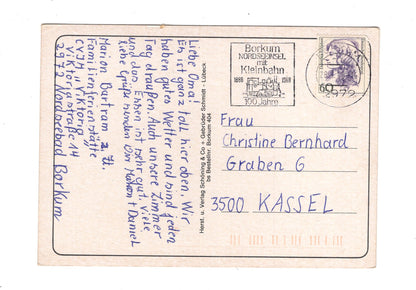 Marion Bartram z. Zt.
Familienferienstätte
CVJM Viktoria
Viktoriastraße 14
2972 Nordseebad Borkum
Liebe Oma!
Es ist ganz toll hier oben. Wir
haben gutes Wetter und sind jeden
Tag draußen. Auch unsere Zimmer
und das Essen ist sehr gut. Viele
liebe Grüße senden Dir Marion + Daniel
Horst. u. Verlag Schöning & Co + Gebrüder Schmidt - Lübeck
bs Bestellnr. Borkum 404
Borkum
NORDSEEINSEL
mit
Kleinbahn
1888 1988
100 Jahre
60
2972
Frau
Christine Bernhard
Graben 6
3500 KASSEL